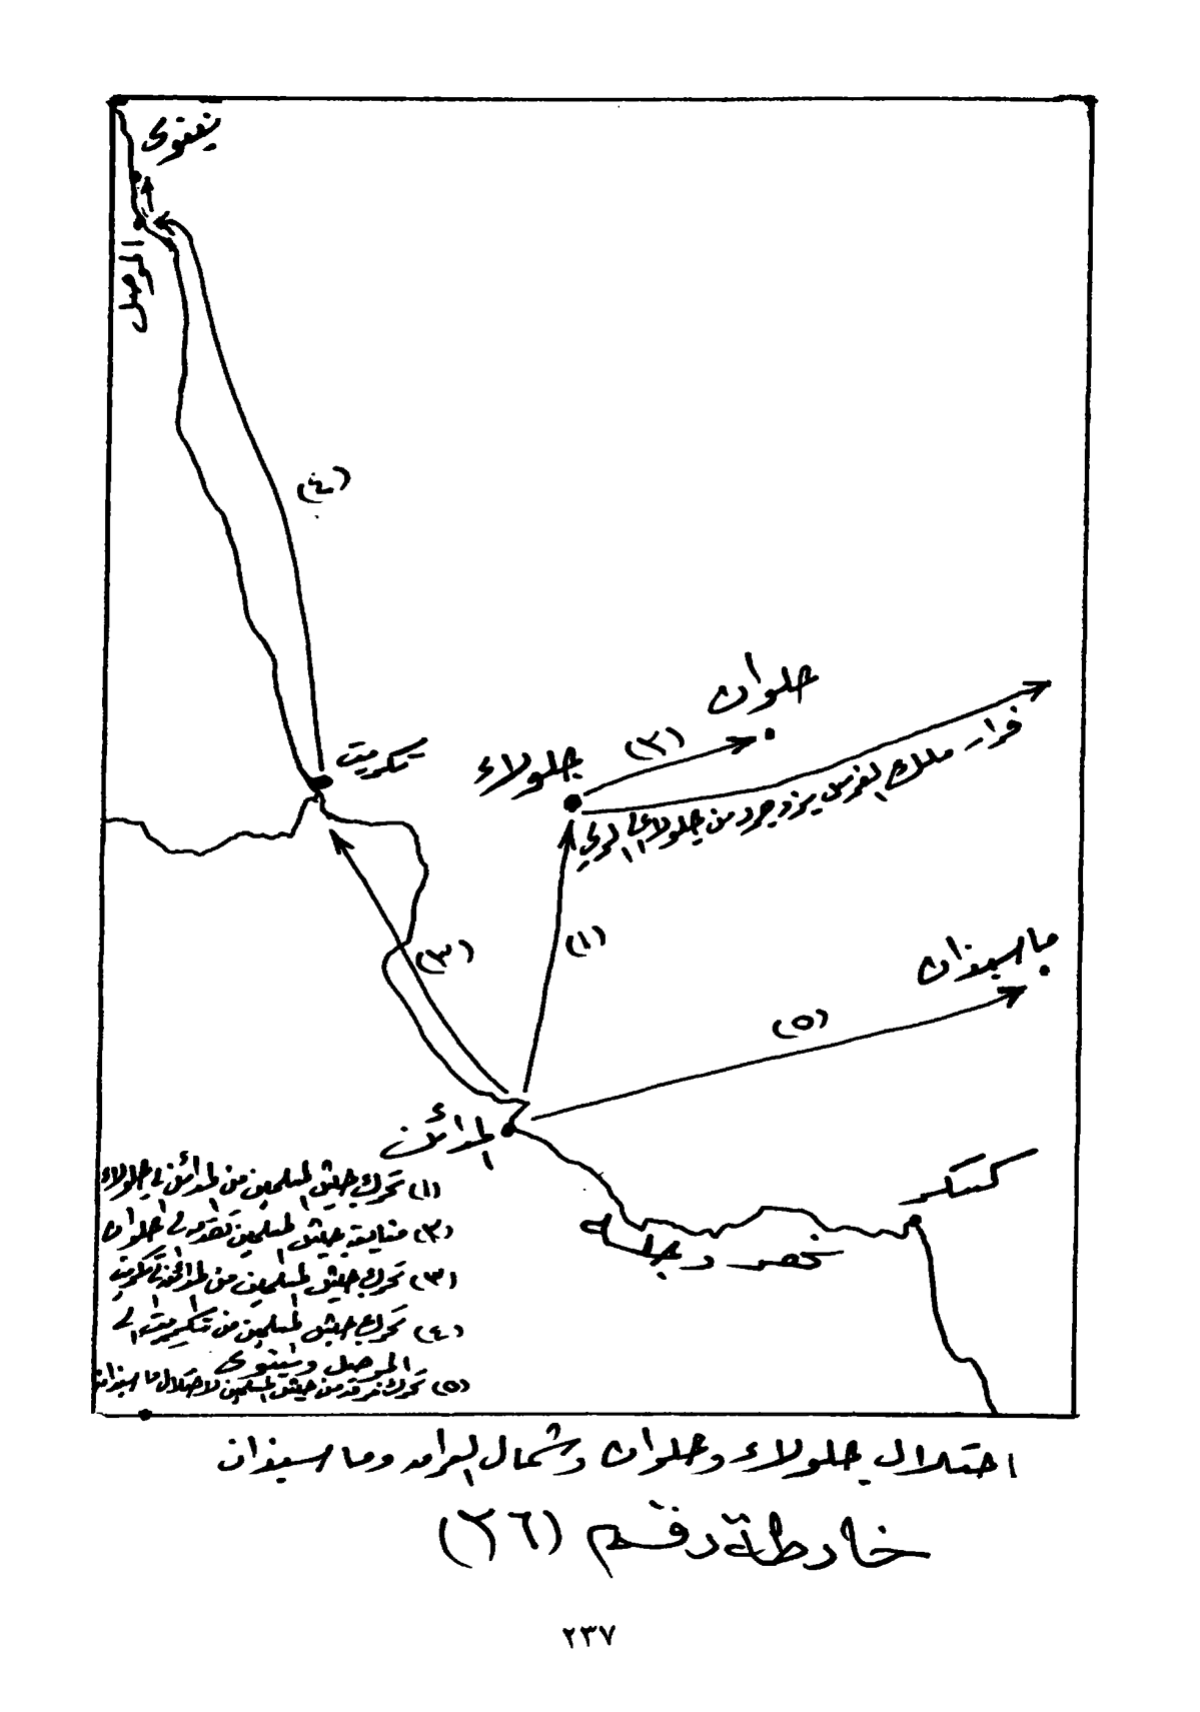 نينوى
الموصل
(٤)
حلوان
(٢)
تكريت
جلولاء
فرار ملك الفرس يزدجرد من جلولاء إلى الري
(٣)
(١)
ماسبذان
(٥)
المدائن
كسكر
نهر دجلة
(١) تحرك جيش المسلمين من المدائن إلى جلولاء
(٢) متابعة جيش المسلمين تقدمه إلى حلوان
(٣) تحرك جيش المسلمين من المدائن إلى تكريت
(٤) تحرك جيش المسلمين من تكريت إلى
الموصل ونينوى
(٥) تحرك فرقة من جيش المسلمين لاحتلال ماسبذان
احتلال جلولاء وحلوان وشمال العراق وماسبذان
خارطة رقم (٢٦)
٢٣٧